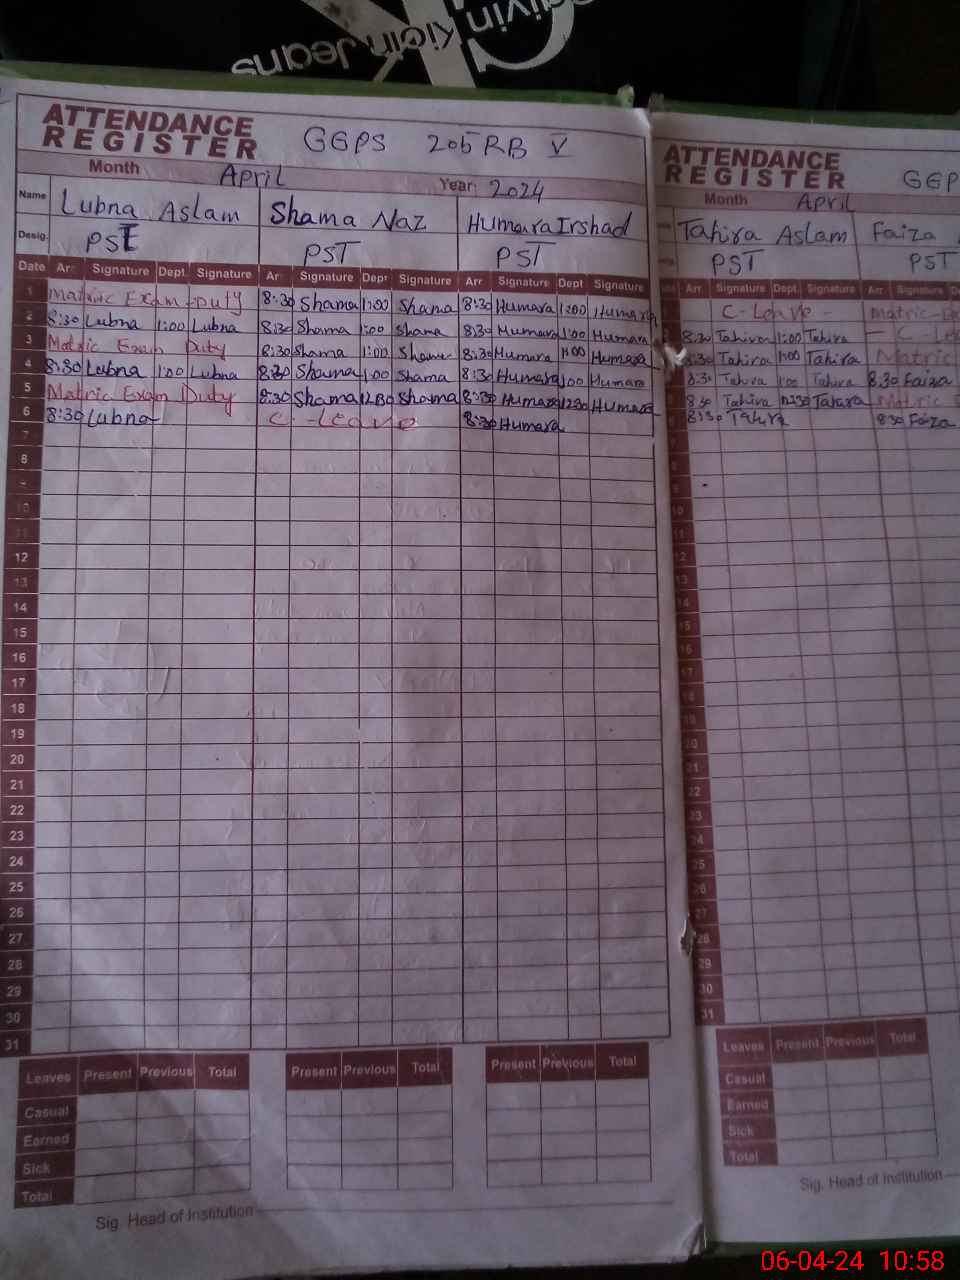 Calvin
Klein Jeans
ATTENDANCE
REGISTER
GGPS 205 RB V
Month April Year: 2024
Name Lubna Aslam Shama Naz Humara Irshad
Desig. PST PST PST
Date Arr. Signature Dept. Signature Arr. Signature Dept. Signature Arr. Signature Dept. Signature
1 Matric Exam Duty 8:30 Shama 1:00 Shama 8:30 Humara 1:00 Humara
2 8:30 Lubna 1:00 Lubna 8:30 Shama 1:00 Shama 8:30 Humara 1:00 Humara
3 Matric Exam Duty 8:30 Shama 1:00 Shama 8:30 Humara 1:00 Humara
4 8:30 Lubna 1:00 Lubna 8:30 Shama 1:00 Shama 8:30 Humara 1:00 Humara
5 Matric Exam Duty 8:30 Shama 12:30 Shama 8:30 Humara 12:30 Humara
6 8:30 Lubna C-Leave 8:30 Humara
7
8
10
11
12
13
14
15
16
17
18
19
20
21
22
23
24
25
26
27
28
29
30
31
Leaves Present Previous Total Present Previous Total Present Previous Total
Casual
Earned
Sick
Total
Sig. Head of Institution
ATTENDANCE
REGISTER
GGP
Month April
Tahira Aslam Faiza
PST PST
Arr. Signature Dept. Signature Arr. Signature
C-Leave Matric
8:30 Tahira 1:00 Tahira
8:30 Tahira 1:00 Tahira Matric
8:30 Tahira 1:00 Tahira 8:30 Faiza
8:30 Tahira 12:30 Tahira Matric
8:30 Tahira 8:30 Faiza
8
9
10
11
12
13
14
15
16
17
18
19
20
21
22
23
24
25
26
27
28
29
30
31
Leaves Present Previous Total
Casual
Earned
Sick
Total
Sig. Head of Institution
06-04-24 10:58